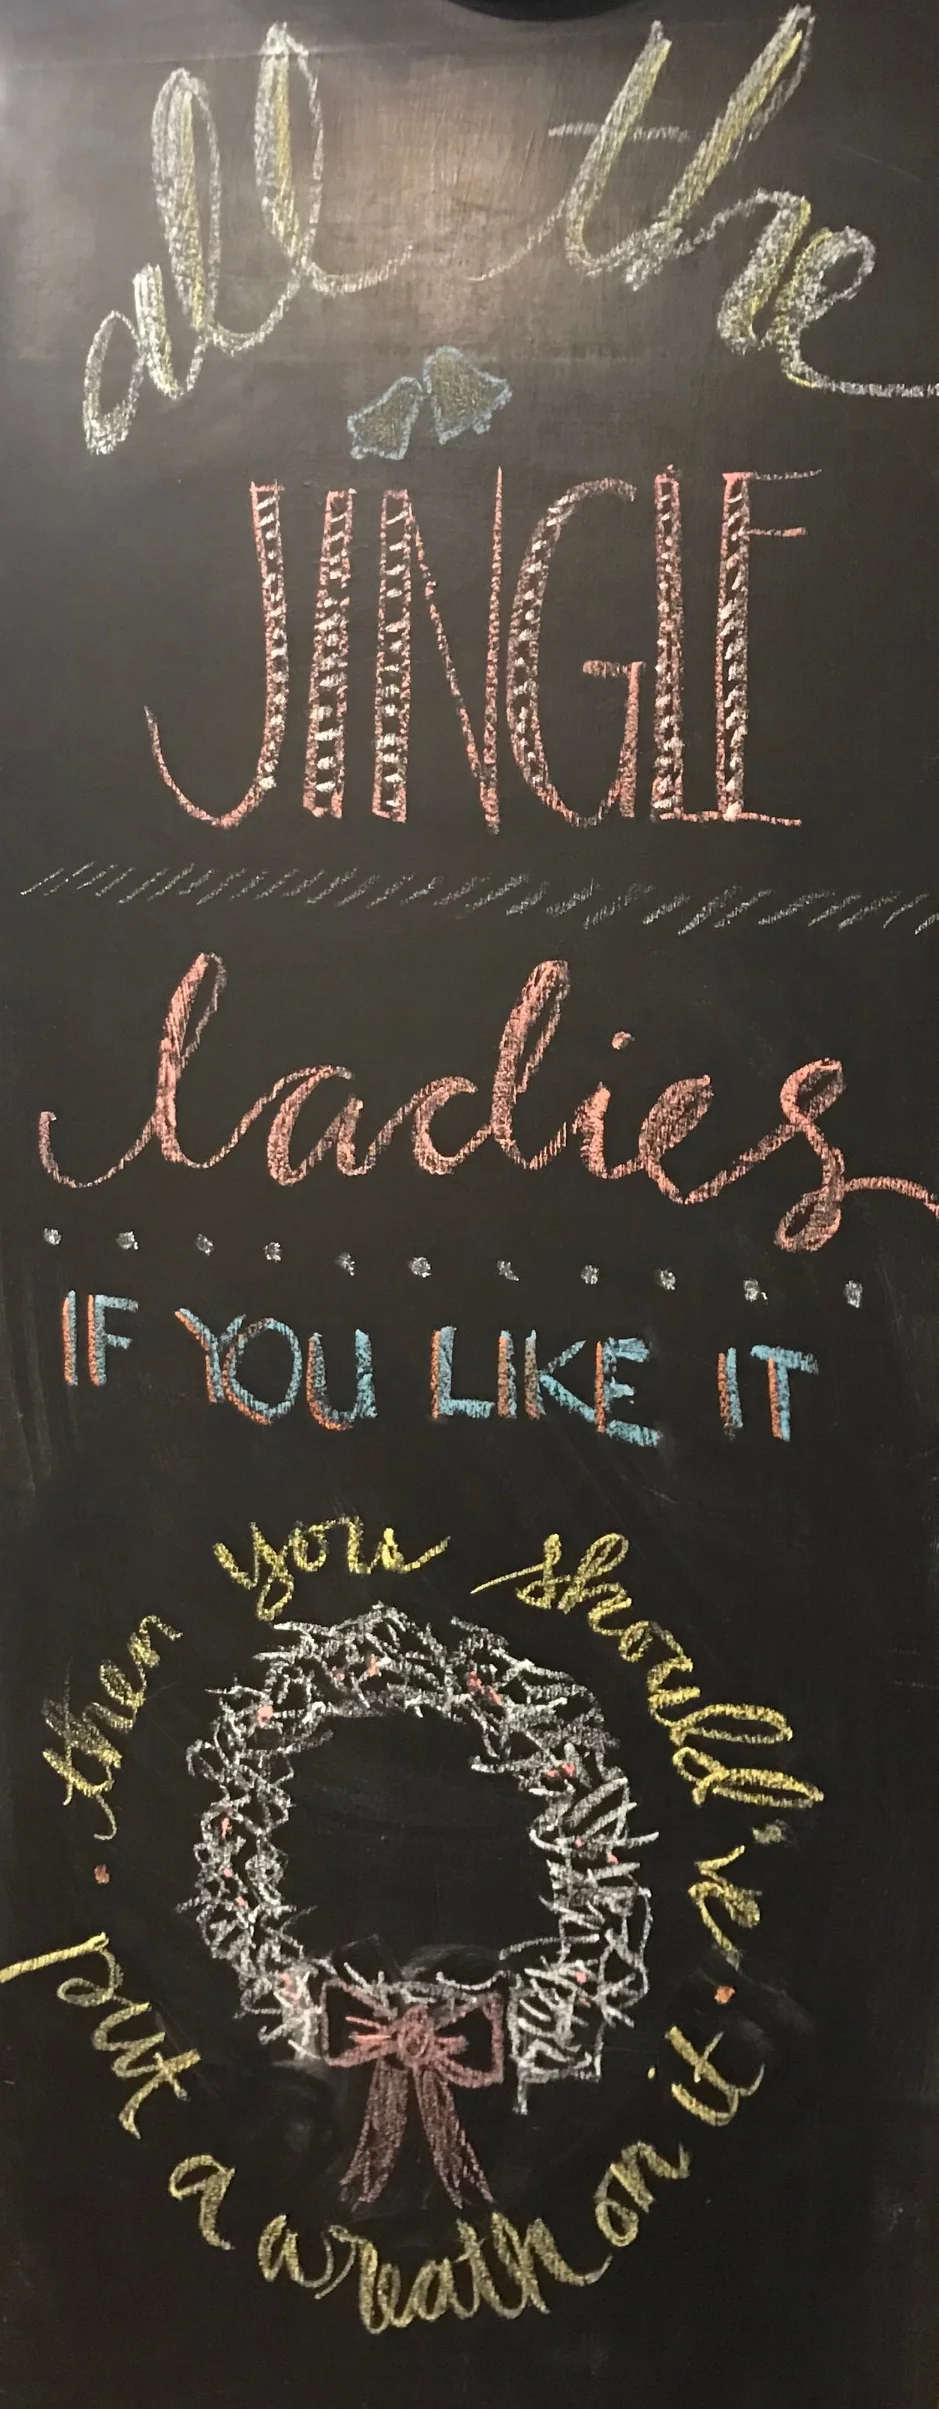 all the
JINGLE
ladies
IF YOU LIKE IT
then you should've
put a wreath on it